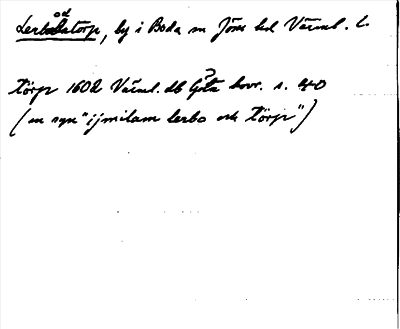 Lerbodatorp, by i Boda sn Jösse hd Värml. l.
Törp 1602 Värml. db Göta hovr. s. 40
(en syn "ijmilam lerbo och Törp")